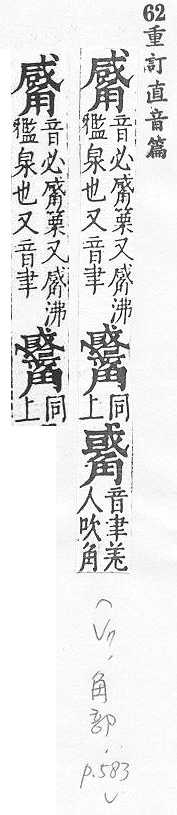 62重訂直音篇
觱
音必觱篥又觱沸
檻泉也又音聿
同
上
音聿羌
人吹角
角部
p.583
觱
音必觱篥又觱沸
檻泉也又音聿
同
上